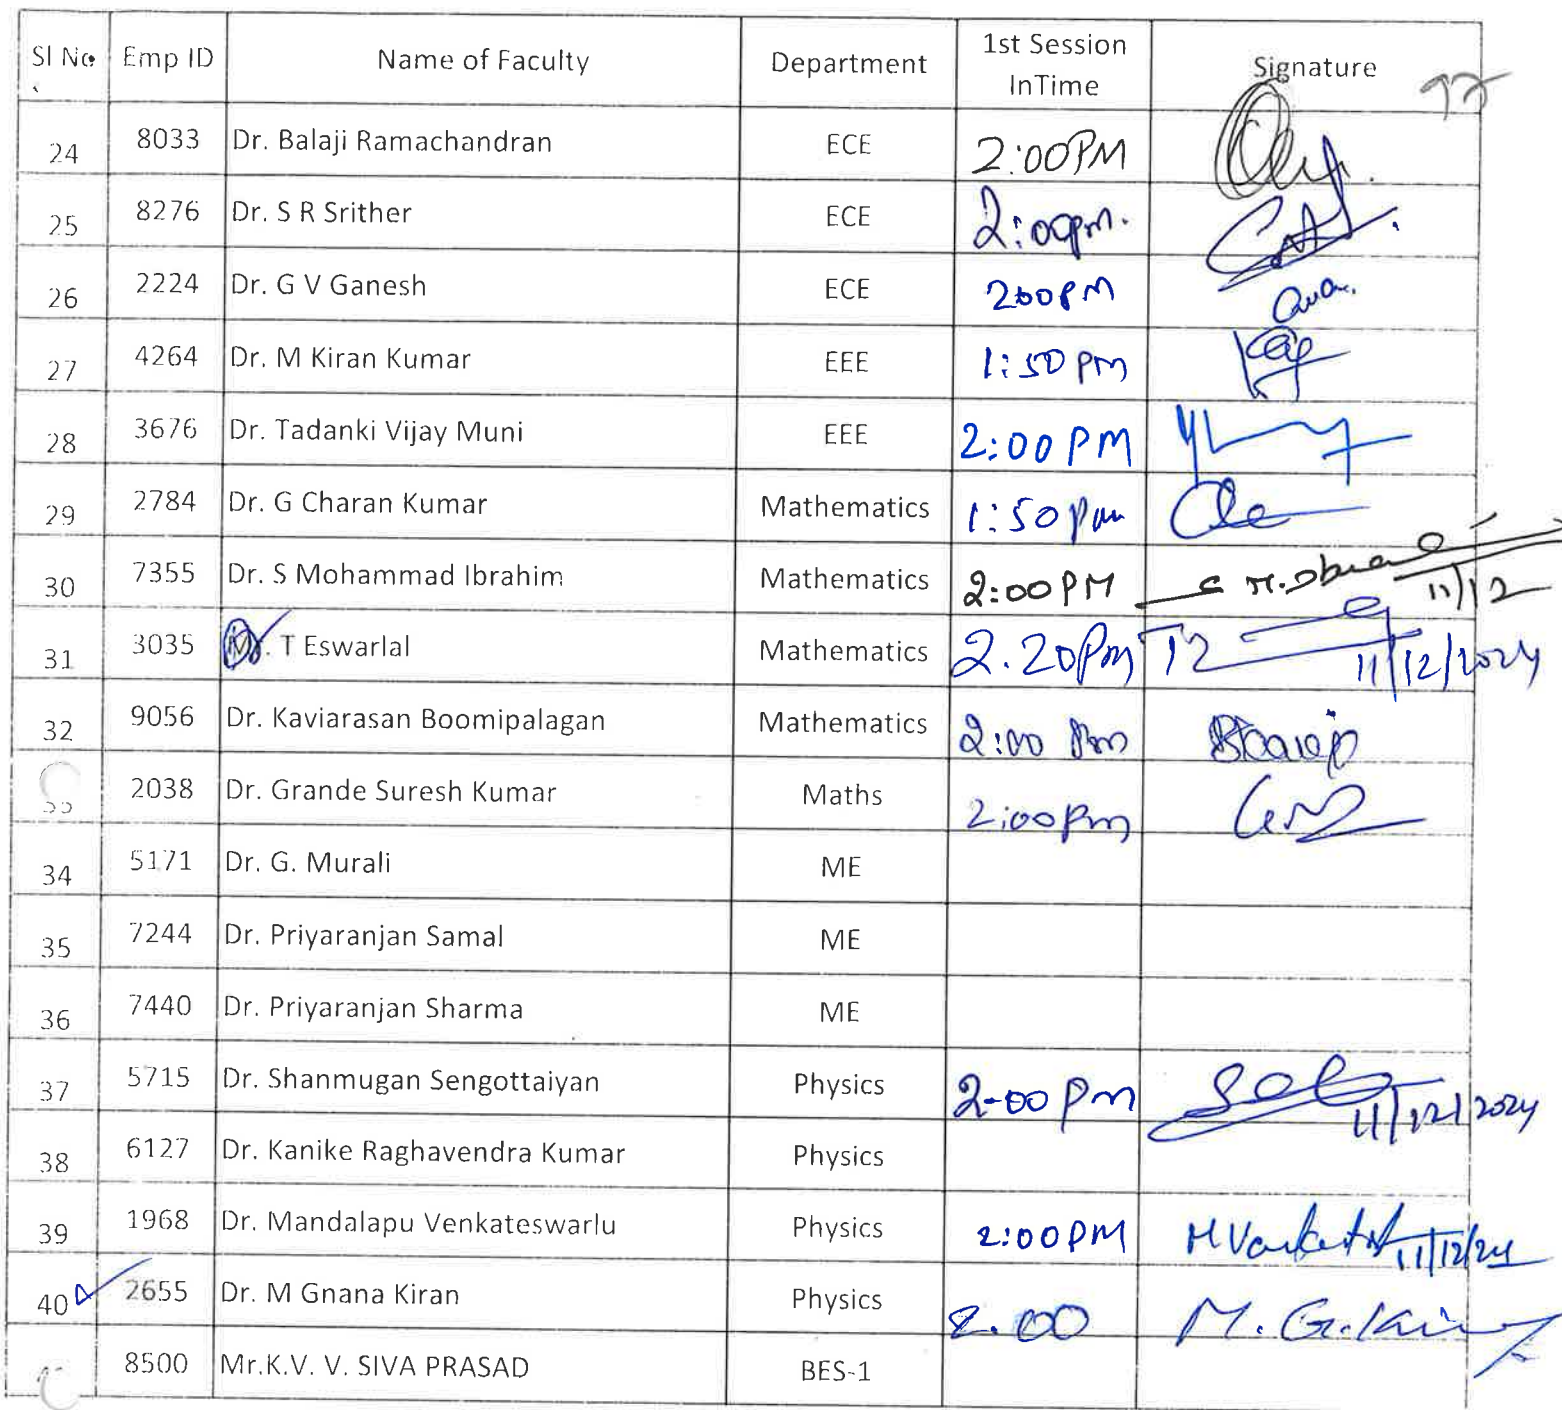 Sl No. Emp ID Name of Faculty Department 1st Session InTime Signature
24 8033 Dr. Balaji Ramachandran ECE 2:00PM
25 8276 Dr. S R Srither ECE 2:00pm.
26 2224 Dr. G V Ganesh ECE 2:00PM
27 4264 Dr. M Kiran Kumar EEE 1:50 PM
28 3676 Dr. Tadanki Vijay Muni EEE 2:00 PM
29 2784 Dr. G Charan Kumar Mathematics 1:50 pm
30 7355 Dr. S Mohammad Ibrahim Mathematics 2:00PM 11/12
31 3035 Dr. T Eswarlal Mathematics 2.20Pm 11/12/2024
32 9056 Dr. Kaviarasan Boomipalagan Mathematics 2:00 Pm
33 2038 Dr. Grande Suresh Kumar Maths 2:00pm
34 5171 Dr. G. Murali ME
35 7244 Dr. Priyaranjan Samal ME
36 7440 Dr. Priyaranjan Sharma ME
37 5715 Dr. Shanmugan Sengottaiyan Physics 2-00 Pm 11/12/2024
38 6127 Dr. Kanike Raghavendra Kumar Physics
39 1968 Dr. Mandalapu Venkateswarlu Physics 2:00PM 11/12/24
40 2655 Dr. M Gnana Kiran Physics 2.00 M. G. Kiran
8500 Mr.K.V. V. SIVA PRASAD BES-1